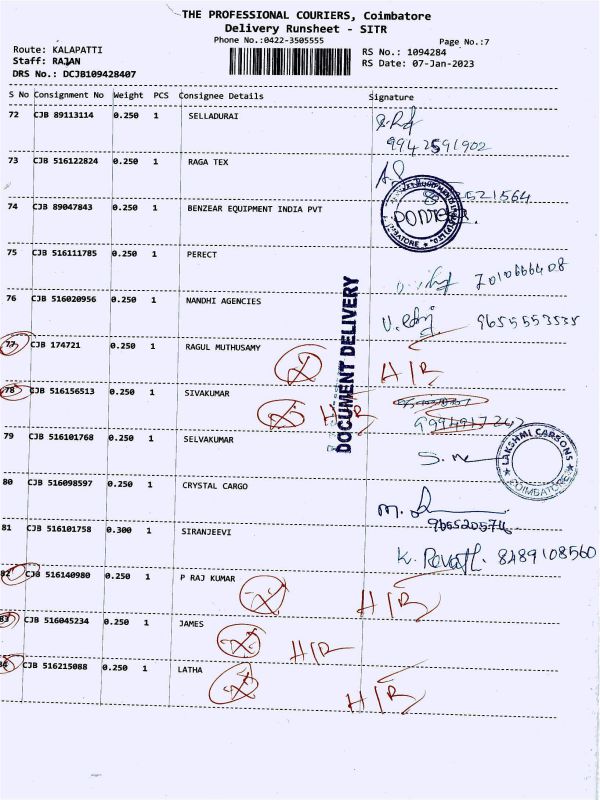 THE PROFESSIONAL COURIERS, Coimbatore
Delivery Runsheet - SITR
Phone No.:0422-3505555
Page No.:7
Route: KALAPATTI
RS No.: 1094284
Staff: RAJAN
RS Date: 07-Jan-2023
DRS No.: DCJB109428407
S No Consignment No Weight PCS Consignee Details Signature
72 CJB 89113114 0.250 1 SELLADURAI
9942591902
73 CJB 516122824 0.250 1 RAGA TEX
521564
74 CJB 89047843 0.250 1 BENZEAR EQUIPMENT INDIA PVT
75 CJB 516111785 0.250 1 PERECT
7010666408
76 CJB 516020956 0.250 1 NANDHI AGENCIES
9655553535
DOCUMENT DELIVERY
77 CJB 174721 0.250 1 RAGUL MUTHUSAMY
78 CJB 516156513 0.250 1 SIVAKUMAR
H/R
79 CJB 516101768 0.250 1 SELVAKUMAR
LAKSHMI CARSONS
COIMBATORE
80 CJB 516098597 0.250 1 CRYSTAL CARGO
81 CJB 516101758 0.300 1 SIRANJEEVI
8489108560
82 CJB 516140980 0.250 1 P RAJ KUMAR
H/R
83 CJB 516045234 0.250 1 JAMES
H/R
84 CJB 516215088 0.250 1 LATHA
H/R